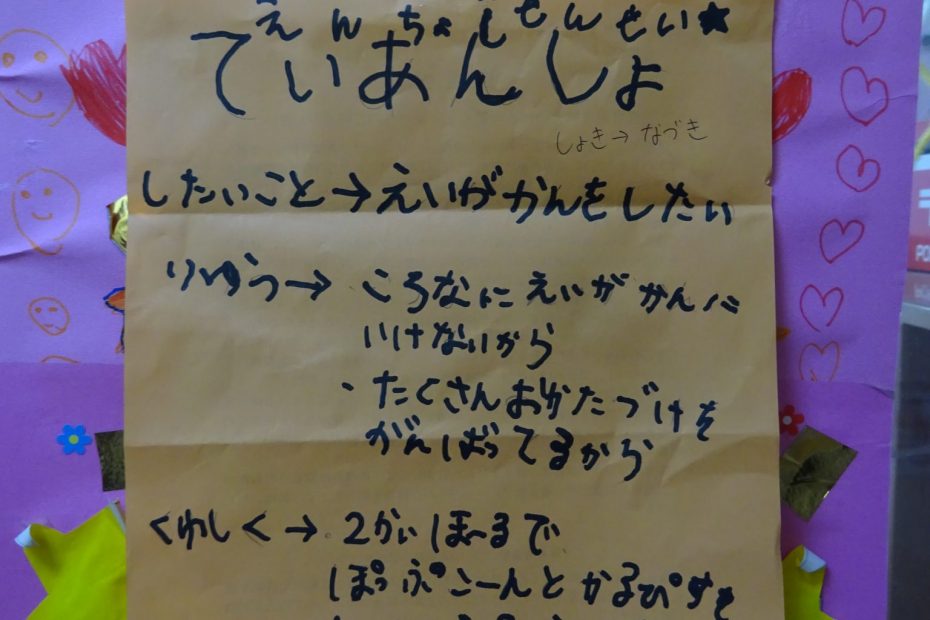 えんちょうせんせい★
てぃあんしょ
しょき→なづき
したいこと→えいがかんをしたい
りゆう→ころなにえいがかんに
いけないから
・たくさんおかたづけを
がんばってるから
くわしく→2かいほーるで
ぽっぷこーんとかるぴすを